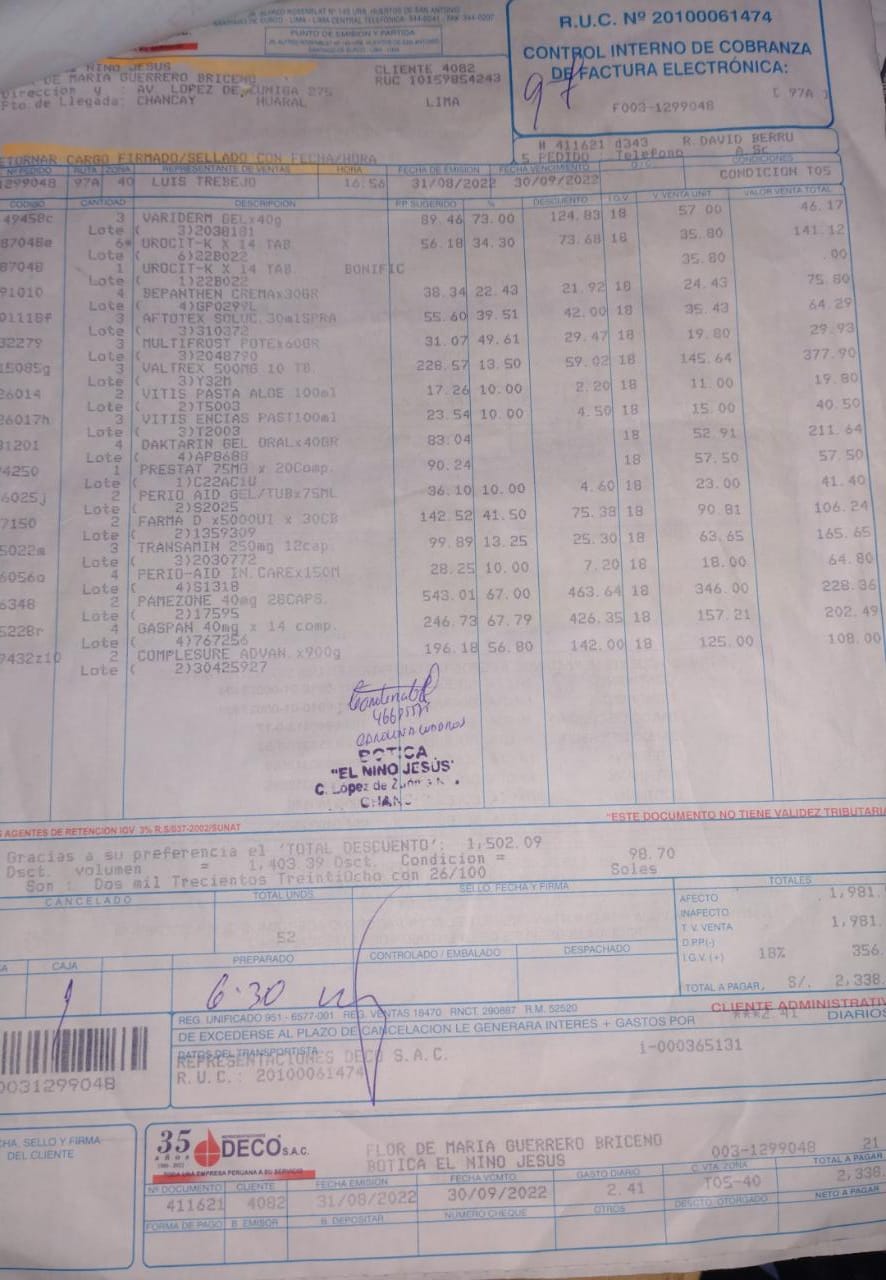 JR. ALFREDO ROSENBLAT Nº 145 URB. HUERTOS DE SAN ANTONIO
SANTIAGO DE SURCO - LIMA - LIMA CENTRAL TELEFÓNICA: 344-0241 FAX 344-0207
PUNTO DE EMISIÓN Y PARTIDA
R.U.C. Nº 20100061474
CONTROL INTERNO DE COBRANZA
DE FACTURA ELECTRÓNICA:
97
F003-1299048 [ 97A ]
NINO JESUS
DE MARIA GUERRERO BRICENO
Direccion y : AV. LOPEZ DE ZUNIGA 275
Pto. de Llegada: CHANCAY HUARAL LIMA
CLIENTE 4082
RUC 10159854243
RETORNAR CARGO FIRMADO/SELLADO CON FECHA/HORA
# 411621 4343 R.DAVID BERRU
S. PEDIDO Telefono A.Sr
Nº PEDIDO RUTA ZONA REPRESENTANTE DE VENTAS HORA FECHA DE EMISIÓN FECHA VENCIMIENTO O/C CONDICIONES
1299048 97A 40 LUIS TREBEJO 16:56 31/08/2022 30/09/2022 CONDICION TO5
CÓDIGO CANTIDAD DESCRIPCIÓN P.P. SUGERIDO % DESCUENTO I.G.V. V. VENTA UNIT. VALOR VENTA TOTAL
49458c 3 VARIDERM GELx40g 89.46 73.00 124.83 18 57.00 46.17
Lote ( 3)2038181
87048e 6* UROCIT-K X 14 TAB 56.18 34.30 73.68 18 35.80 141.12
Lote ( 6)22B022
87048 1 UROCIT-K X 14 TAB. BONIFIC 35.80 .00
Lote ( 1)22B022
91010 4 BEPANTHEN CREMAx30GR 38.34 22.43 21.92 18 24.43 75.80
Lote ( 4)GP0299L
01118f 3 AFTOTEX SOLUC.30mlSPRA 55.60 39.51 42.00 18 35.43 64.29
Lote ( 3)310372
32279 3 MULTIFROST POTEx60GR 31.07 49.61 29.47 18 19.80 29.93
Lote ( 3)2048790
15085g 3 VALTREX 500MG 10 TB. 228.57 13.50 59.02 18 145.64 377.90
Lote ( 3)Y32M
26014 2 VITIS PASTA ALOE 100ml 17.26 10.00 2.20 18 11.00 19.80
Lote ( 2)T5003
26017h 3 VITIS ENCIAS PAST100ml 23.54 10.00 4.50 18 15.00 40.50
Lote ( 3)T2003
31201 4 DAKTARIN GEL ORALx40GR 83.04 18 52.91 211.64
Lote ( 4)AP8688
4250 1 PRESTAT 75MG x 20Comp. 90.24 18 57.50 57.50
Lote ( 1)C22AC1U
6025j 2 PERIO AID GEL/TUBx75ML 36.10 10.00 4.60 18 23.00 41.40
Lote ( 2)S2025
7150 2 FARMA D x5000UI x 30CB 142.52 41.50 75.38 18 90.81 106.24
Lote ( 2)1359309
5022m 3 TRANSAMIN 250mg 12cap. 99.89 13.25 25.30 18 63.65 165.65
Lote ( 3)2030772
6056a 4 PERIO-AID IN.CAREx150M 28.25 10.00 7.20 18 18.00 64.80
Lote ( 4)S1318
6348 2 PAMEZONE 40mg 28CAPS. 543.01 67.00 463.64 18 346.00 228.36
Lote ( 2)17595
5228r 4 GASPAN 40mg x 14 comp. 246.73 67.79 426.35 18 157.21 202.49
Lote ( 4)767256
9432z10 2 COMPLESURE ADVAN.x900g 196.18 56.80 142.00 18 125.00 108.00
Lote ( 2)30425927
BOTICA
"EL NINO JESÚS"
C. López de
AGENTES DE RETENCIÓN IGV. 3% R.S/037-2002/SUNAT
"ESTE DOCUMENTO NO TIENE VALIDEZ TRIBUTARIA
Gracias a su preferencia el 'TOTAL DESCUENTO': 1,502.09
Dsct. volumen = 1,403.39 Dsct. Condicion = 98.70
Son : Dos mil Trecientos TreintiOcho con 26/100 Soles
CANCELADO TOTAL UNDS SELLO, FECHA Y FIRMA TOTALES
52
AFECTO 1,981.
INAFECTO
T. V. VENTA 1,981.
D.PP(-)
I.G.V. (+) 18% 356.
TOTAL A PAGAR, S/. 2,338.
CAJA PREPARADO CONTROLADO / EMBALADO DESPACHADO
6:30
REG. UNIFICADO 951 - 6577-001 REG. VENTAS 18470 RNCT. 290887 R.M. 52520
CLIENTE ADMINISTRATIV
DE EXCEDERSE AL PLAZO DE CANCELACION LE GENERARA INTERES + GASTOS POR ***2.41 DIARIOS
DATOS DEL TRANSPORTISTA
REPRESENTACIONES DECO S.A.C. 1-000365131
R.U.C.: 20100061474
0031299048
FECHA, SELLO Y FIRMA
DEL CLIENTE
35 años
1986-2022
DECO S.A.C.
TODA UNA EMPRESA PERUANA A SU SERVICIO
FLOR DE MARIA GUERRERO BRICENO
BOTICA EL NINO JESUS
003-1299048 21
Nº DOCUMENTO CLIENTE FECHA EMISIÓN FECHA VCMTO GASTO DIARIO C. VTA. ZONA TOTAL A PAGAR
411621 4082 31/08/2022 30/09/2022 2.41 TO5-40 2,338
FORMA DE PAGO B. EMISOR B. DEPOSITAR NÚMERO CHEQUE OTROS DESCTO. OTORGADO NETO A PAGAR